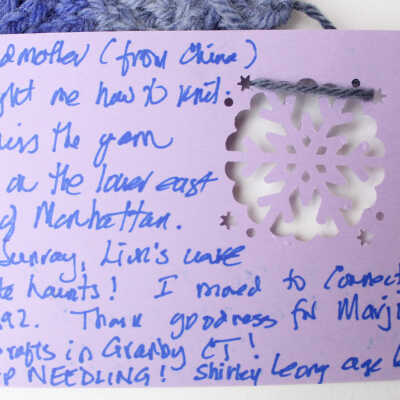 dmother (from China)
ght me how to knit.
iss the yarn
on the lower east
of Manhattan.
Sunray, Lion's were
te haunts! I moved to Connect
92. Thank goodness for Marji
rafts in Granby CT!
P NEEDLING! Shirley Leong age